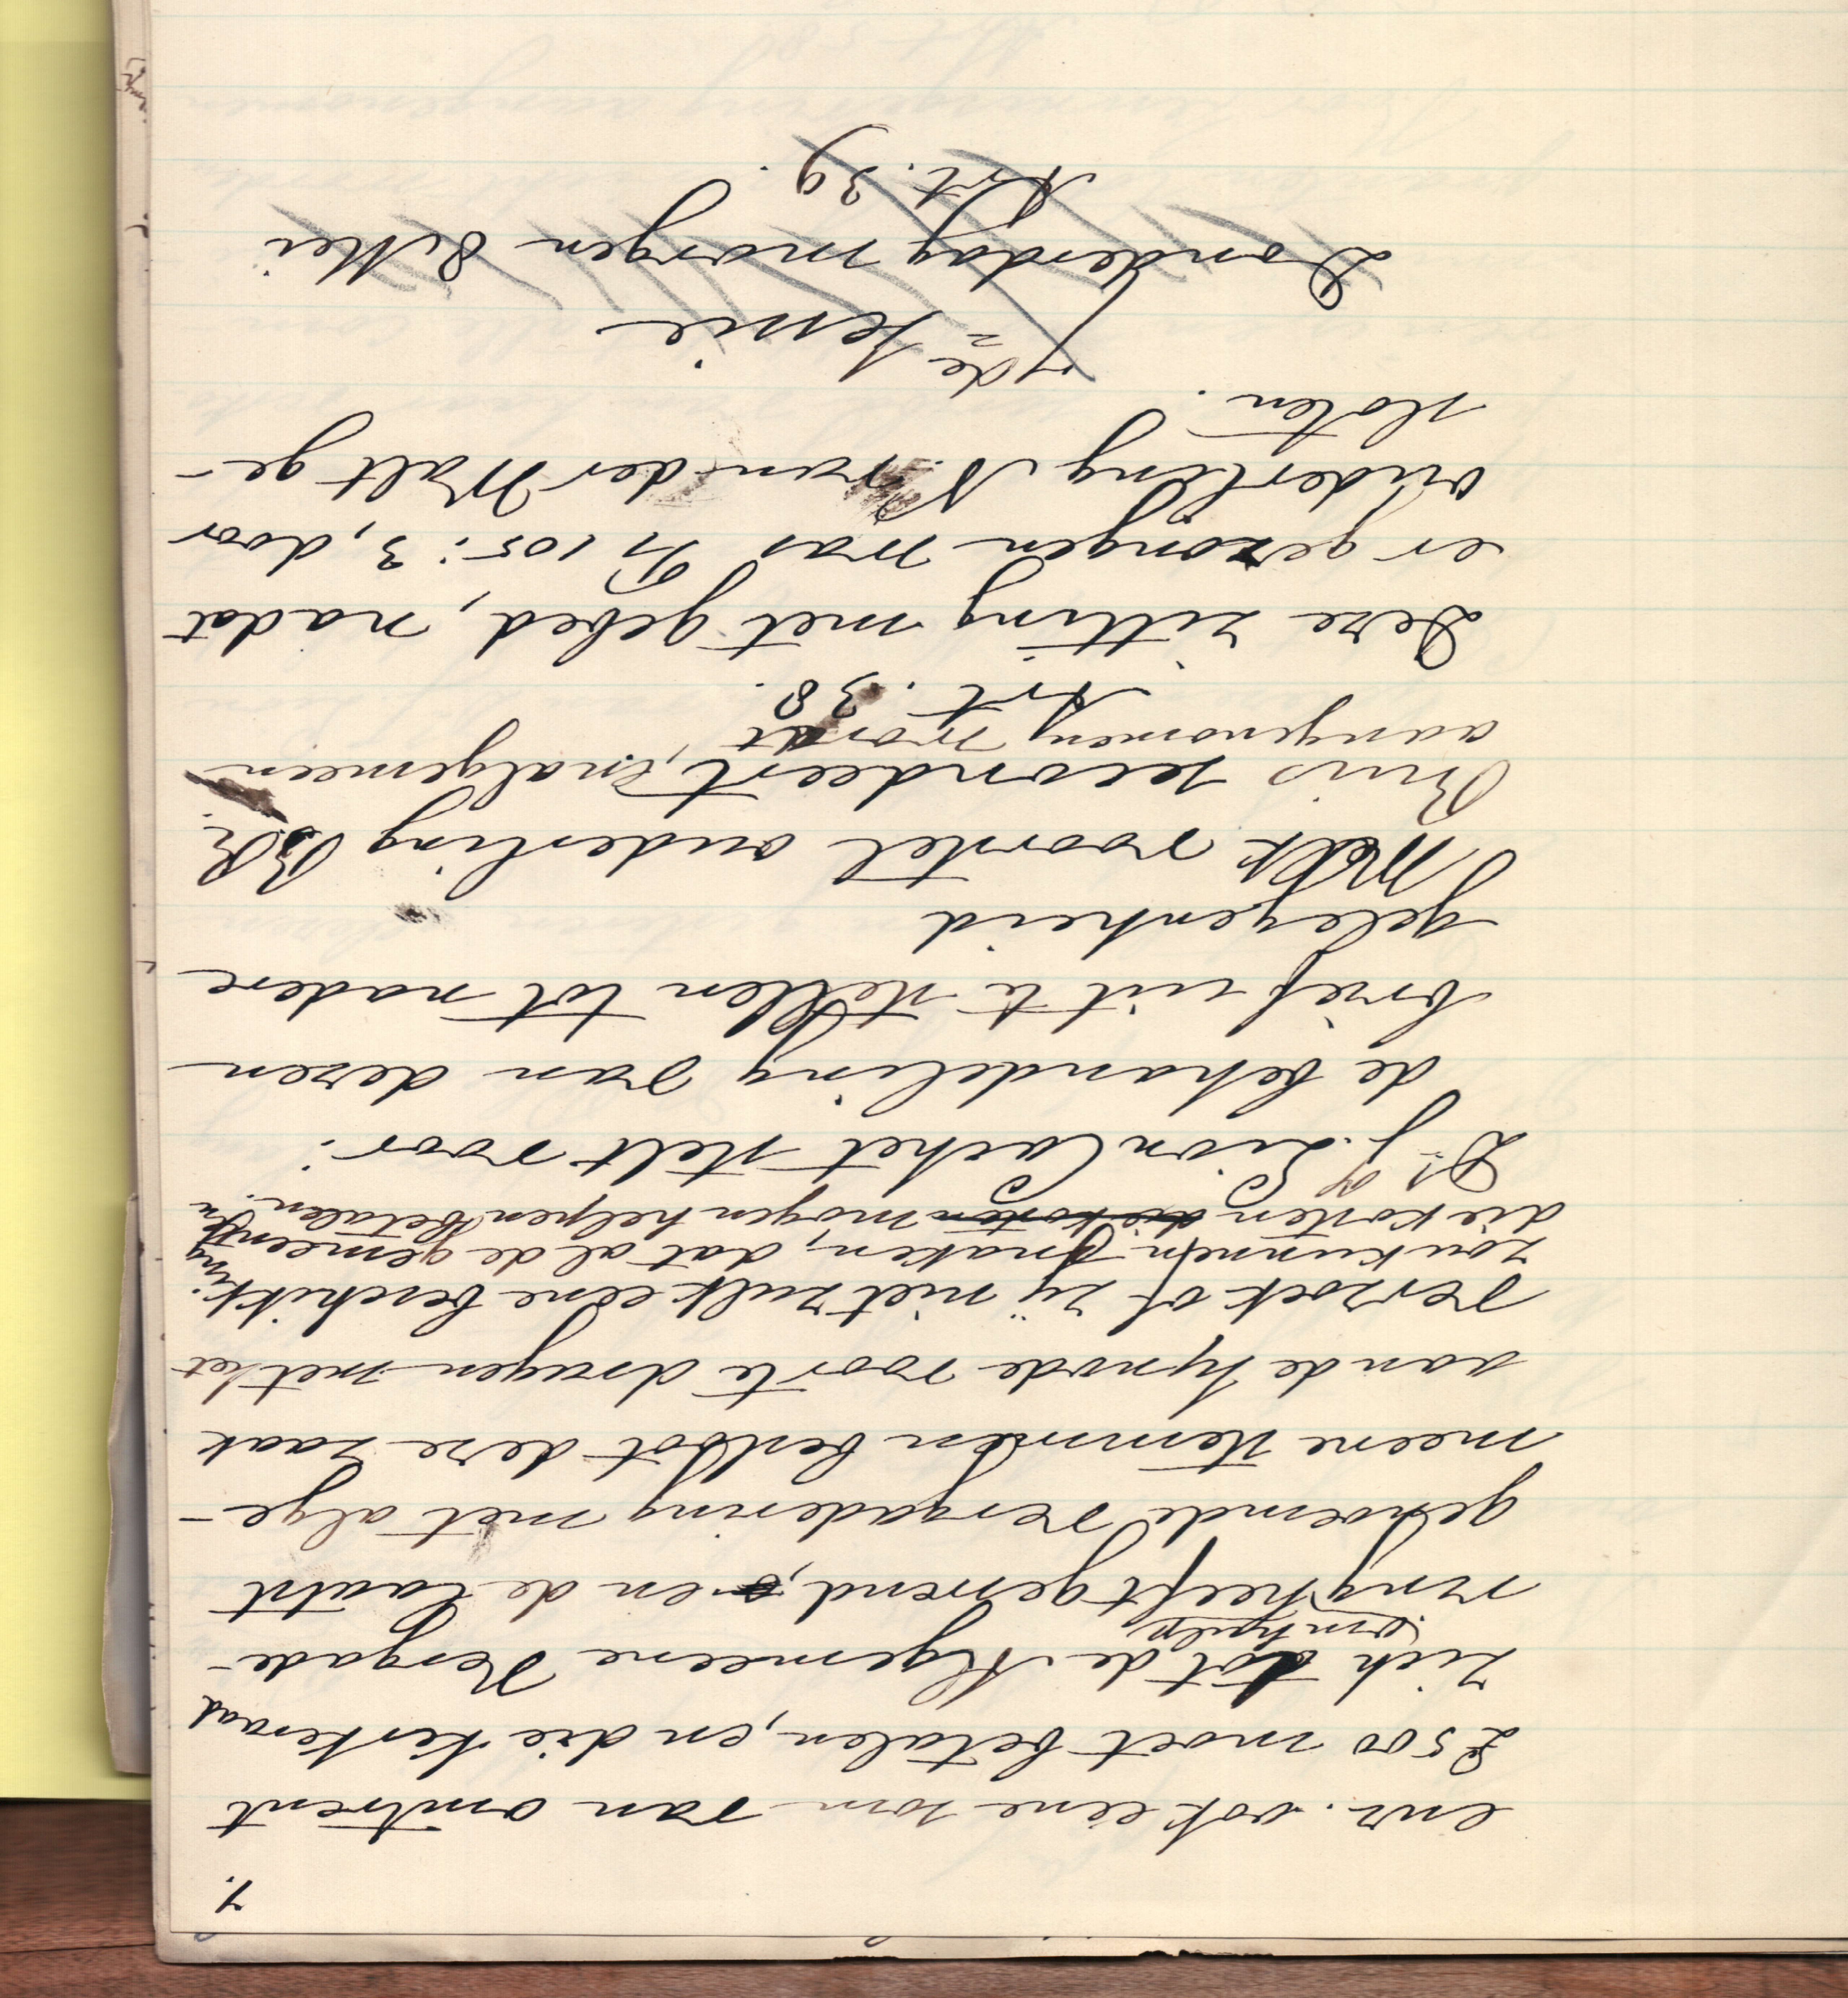 7.
enz. ook eene som van omtrent
£500 moet betalen, en die kerkeraad
zich tot de Algemeene Vergade-
om hulp
ring heeft gewend, en de laatst
genoemde vergadering met alge-
meene stemmen besloot deze zaak
aan de Synode voor te dragen met het
verzoek of zij niet zulk eene beschikking
zou kunnen maken, dat al de gemeenten
die kosten die kosten mogen helpen betalen.
Ds. J. Lion Cachet stelt voor:
de behandeling van dezen
brief uit te stellen tot nadere
gelegenheid
Welk voorstel ouderling
Buis secondeert, en algemeen
aangenomen wordt
Art. 38.
Deze zitting met gebed, nadat
er gezongen was Ps 105:3, door
ouderling N. van der Walt ge-
sloten.
7de Sessie
Donderdag morgen 8 Mei
Art. 39.